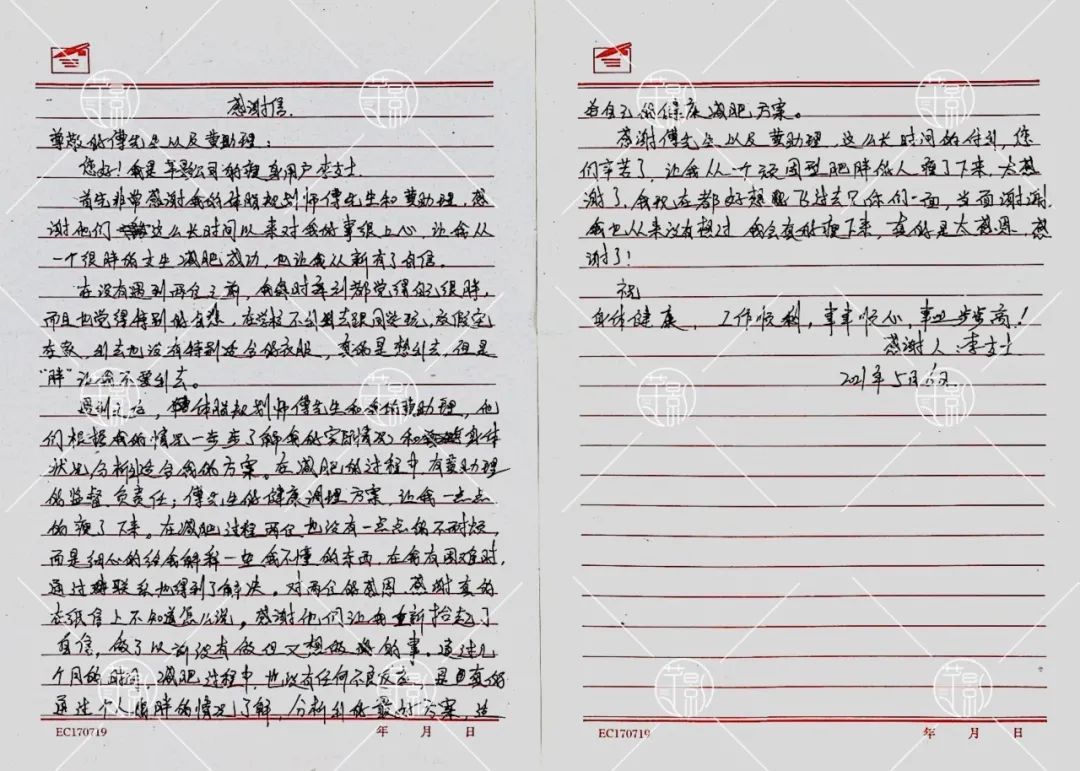 感谢信.
尊敬的傅先生以及黄助理：
您好！我是 公司的瘦身用户李女士.
首先非常感谢我的体脂规划师傅先生和黄助理，感
谢他们 这么长时间以来对我的事很上心，让我从
一个很胖的女生减肥成功，也让我从新有了自信。
在没有遇到两位之前，我 时 到都觉得自己很胖，
而且也觉得特别的自卑，在学校不 去跟同学玩，放假宅
在家，出去也没有特别适合的衣服，真的是想出去，但是
“胖”让我不爱出去。
遇到之后， 体脂规划师傅先生和 黄助理，他
们根据我的情况一步步了解我的实际情况和 身体
状况分析出适合我的方案。在减肥的过程中有黄助理
的监督、负责任；傅先生的健康调理方案，让我一点点
的瘦了下来。在减肥过程两位也没有一点点的不耐烦，
而是细心的给我解释一些我不懂的东西，在我有困难时，
通过 联系也得到了解决。对两位的感恩、感谢真的
在纸信上不知道怎么说。感谢他们让我重新拾起了
自信，做了以前没有做但又想做 的事。通过几
个月的时间，减肥过程中，也没有任何不良反应，是 真的
通过个人肥胖的情况了解，分析出的最好方案，出
自己的健康减肥方案。
感谢傅先生以及黄助理，这么长时间的付出，您
们辛苦了，让我从一个顽固型肥胖的人瘦了下来，太感
谢了，我现在都好想 飞过去见你们一面，当面谢谢.
我也从来没有想过我会真的瘦下来，真的是太感恩、感
谢了！
祝
身体健康、工作顺利，事事顺心，事业步步高！
感谢人：李女士
2021年5月 日
EC170719
年 月 日
EC170719
年 月 日